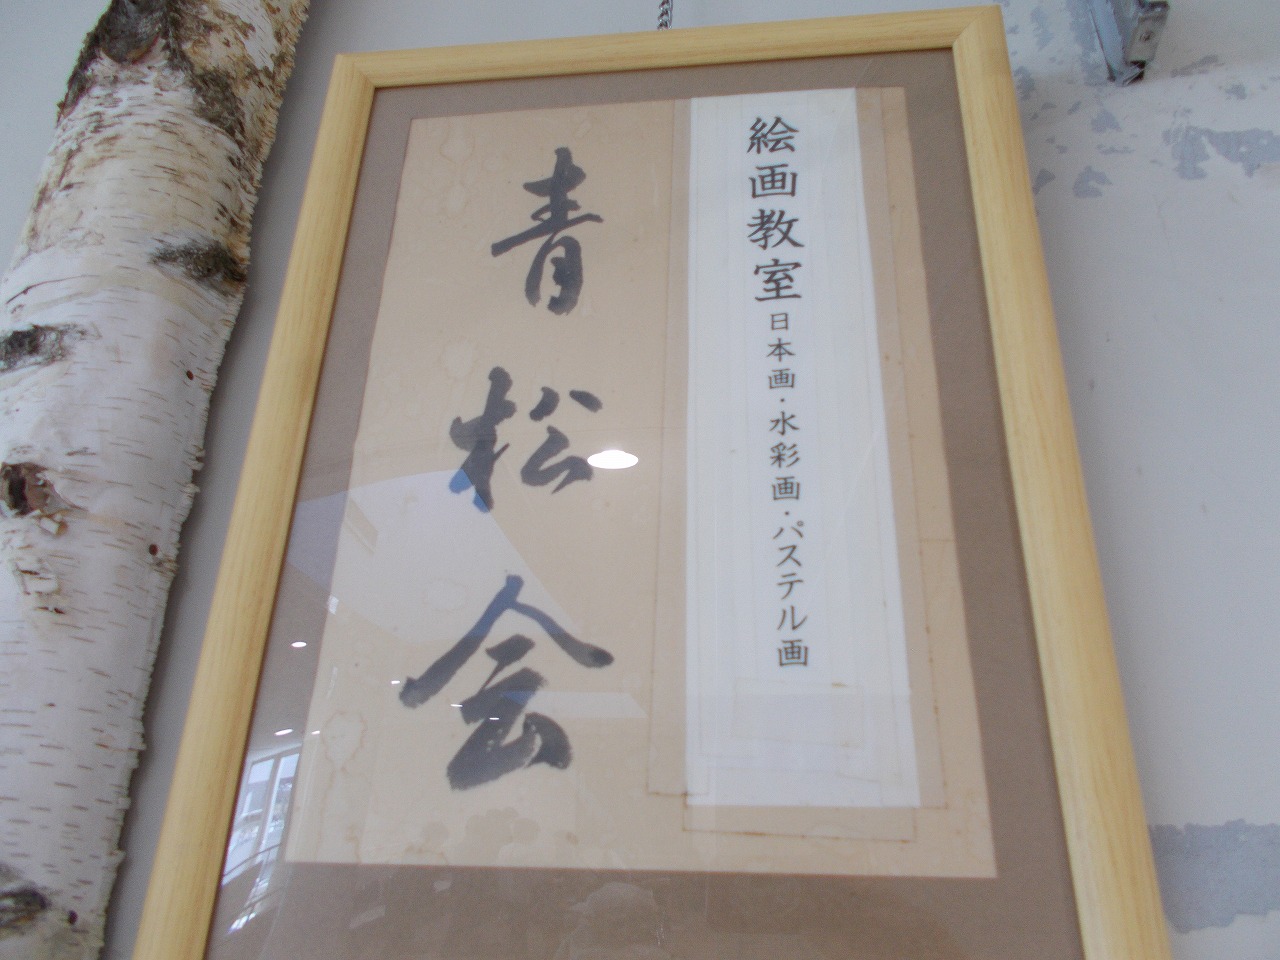 絵画教室 日本画・水彩画・パステル画
青松会